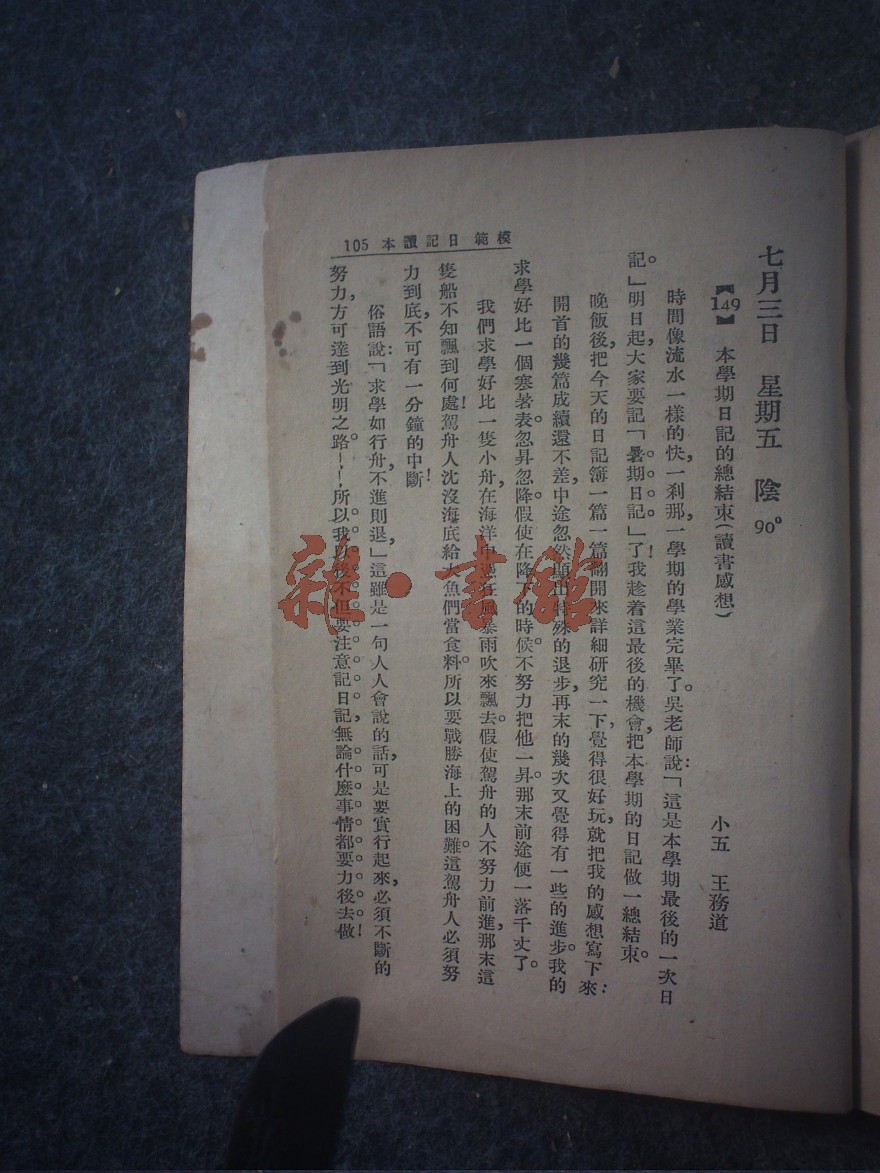 七月三日　星期五　陰　90°
【149】　本學期日記的總結束(讀書感想)　小五　王務道
時間像流水一樣的快，一剎那，一學期的學業完畢了。吳老師說：「這是本學期最後的一次日
記。」明日起，大家要記「暑期日記」了！我趁着這最後的機會，把本學期的日記做一總結束。
晚飯後，把今天的日記簿一篇一篇翻開來詳細研究一下，覺得很好玩，就把我的感想寫下來：
開首的幾篇成績還不差，中途忽然顯出特殊的退步，再末的幾次又覺得有一些的進步。我的
求學好比一個寒暑表。忽昇忽降。假使在降下的時候。不努力把他一昇。那末前途便一落千丈了。
我們求學好比一隻小舟，在海洋中遇狂風暴雨吹來飄去。假使駕舟的人不努力前進，那末這
隻船不知飄到何處！駕舟人沈沒海底給大魚們當食料。所以要戰勝海上的困難。這駕舟人必須努
力到底，不可有一分鐘的中斷！
俗語說：「求學如行舟，不進則退」這雖是一句人人會說的話，可是要實行起來，必須不斷的
努力，方可達到光明之路。——所以我以後不但要注意記日記，無論什麼事情都要力後去做！
模範日記讀本　105
雜·書館